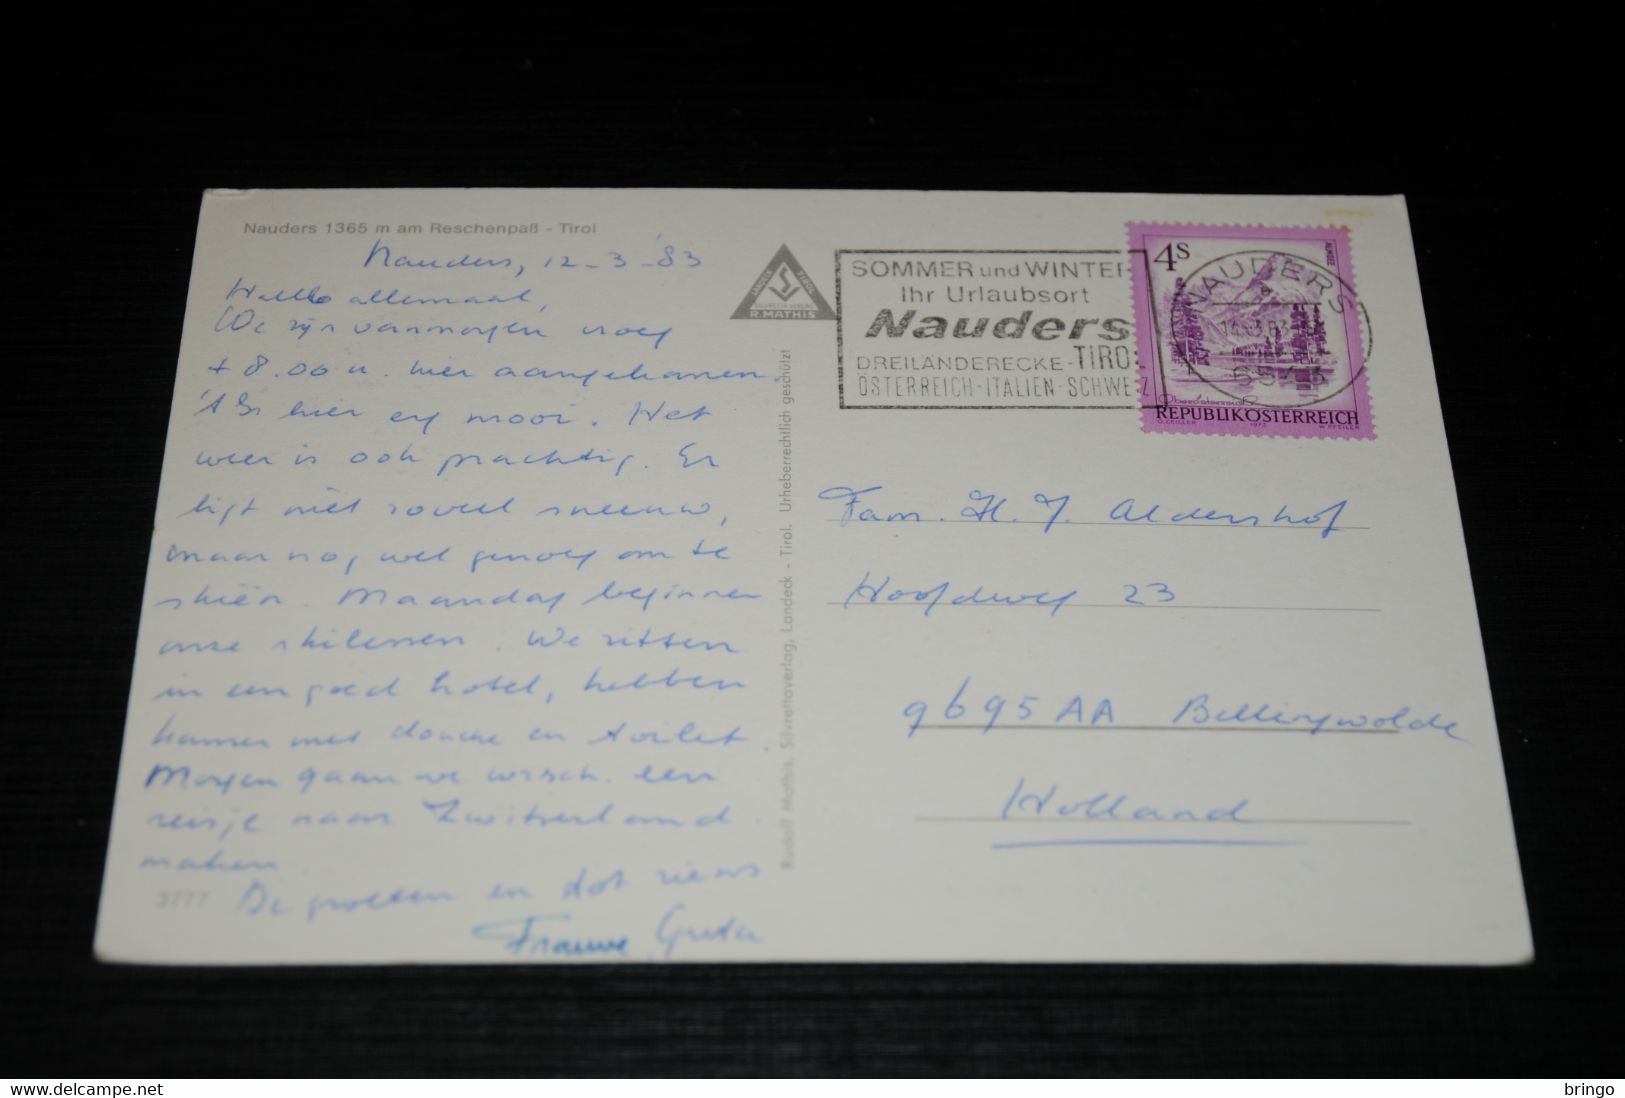 Nauders 1365 m am Reschenpaß - Tirol
Nauders, 12-3-'83
Hallo allemaal,
We zijn vanmorgen vroeg
± 8.00 u. hier aangekomen.
't Is hier erg mooi. Het
weer is ook prachtig. Er
ligt niet zoveel sneeuw,
maar nog wel genoeg om te
skiën. Maandag beginnen
onze skilessen. We zitten
in een goed hotel, hebben
kamer met douche en toilet.
Morgen gaan we wrsch. een
reisje naar Zwitserland
maken.
De groeten en tot ziens
Frauwe, Greta
3777
Rudolf Mathis, Silvrettaverlag, Landeck - Tirol. Urheberrechtlich geschützt
LANDECK TIROL
SILVRETTA-VERLAG
R. MATHIS
SOMMER und WINTER
Ihr Urlaubsort
Nauders
DREILÄNDERECKE-TIROL
ÖSTERREICH-ITALIEN-SCHWEIZ
NAUDERS
6543
4S
ALMSEE
Oberösterreich
REPUBLIK ÖSTERREICH
O. ZEILLER 1973 W. PFEILER
Fam. H. J. Aldershof
Hoofdweg 23
9695 AA Bellingwolde
Holland
© www.delcampe.net
bringo